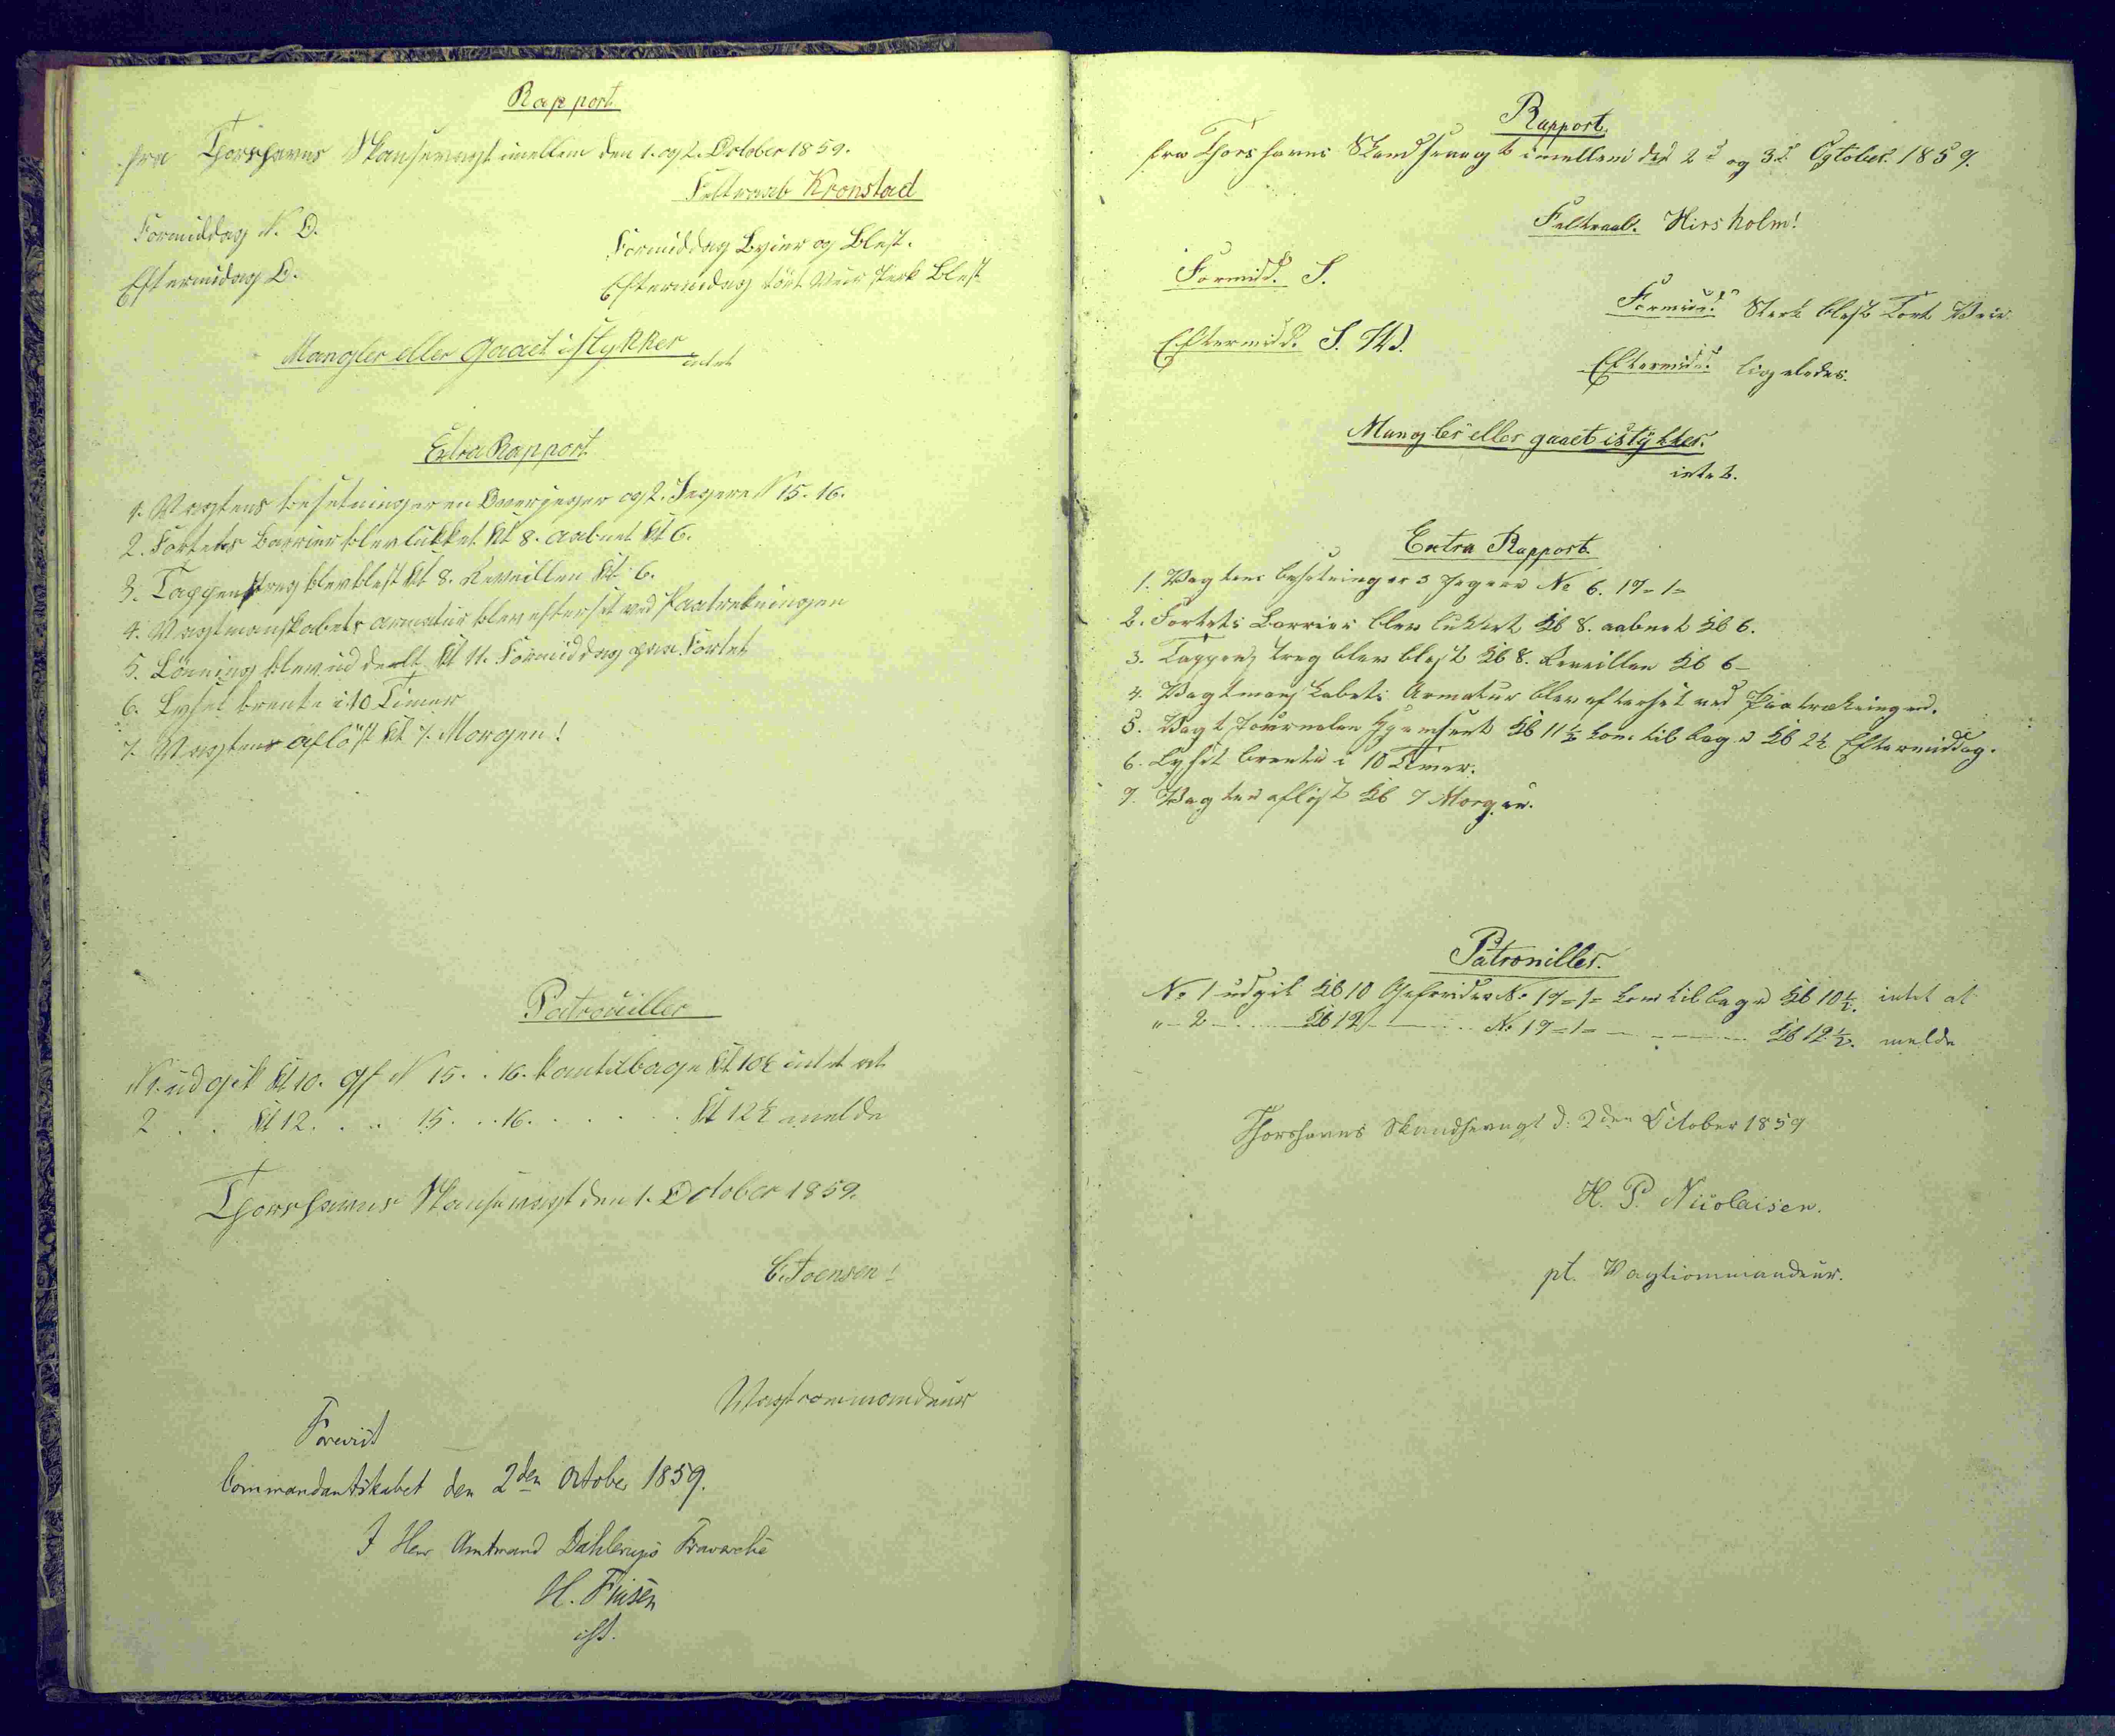 Rapport
fra Thorshavns Skansevagt imellem den 1. og 2. October 1859.
Feltraab Kronstad
Formiddag N. O.
Formiddag Byier og Blest.
Eftermidag O.
Eftermidag tört Veir sterk Blest
Mangler eller Gaaet istykker
intet
Extra Rapport
1. Vagtens besetninger en Overjeger og 2. Jegere N 15. 16.
2. Fortets Barrier blev lukket Kl 8. aabnet Kl 6.
3. Tappenstreg blev blest Kl 8. Reveillen Kl 6.
4. Vagtmanskabets armatur blev efterset ved Paatrekningen
5. Lönning blev uddeelt Kl 11. Formiddag paa Fortet
6. Lyset brente i 10 Timer
7. Vagten aflöst Kl 7. Morgen!
Patrouiller
N 1. udgik Kl 10. Gf N 15. . 16. kom tilbage Kl 10½ intet at
2 . . Kl 12. . . 15 . . 16. . . . . Kl 12½ melde
Thorshavns Skansevagt den 1. October 1859.
C. Joensen!
Vagtcommandeur
Forevist
Commandantskabet den 2den October 1859.
I Herr Amtmand Dahlerups Fraværelse
H. Finsen
cst.
Rapport.
fra Thorshavns Skandsevagt imellem den 2d og 3d Ogtober 1859.
Feltraab. Hirsholm!
Formidd. S.
Formidd. Sterk blest Tort Veir
Eftermidd. S. W.
Eftermidd. ligeledes.
Mangler eller gaaet istykker.
intet.
Extra Rapport.
1. Vagtens besetning er 3 Jegere No 6. 17 = 1 =
2. Fortets Barrier blev lukket Kl 8. aabnet Kl 6.
3. Tappenstreg blev blest Kl 8. Reveillen Kl 6 –
4. Vagtmanskabets Armatur blev efterset ved Paatrækningen.
5. Vagt Journalen hjemsent Kl 11½ kom tilbage Kl 2½ Eftermiddag.
6. Lyset brente i 10 Timer.
7. Vagten afløst Kl 7 Morgen.
Patrouiller.
No 1 udgik Kl 10 Gefreider No 17 = 1 = kom tilbage Kl 10½. intet at
" – 2 – Kl 12 – No 17 = 1 = – Kl 12½. melde
Thorshavns Skandsevagt d: 2den October 1859
H. P. Nicolaisen.
pt. Vagtcommandeur.